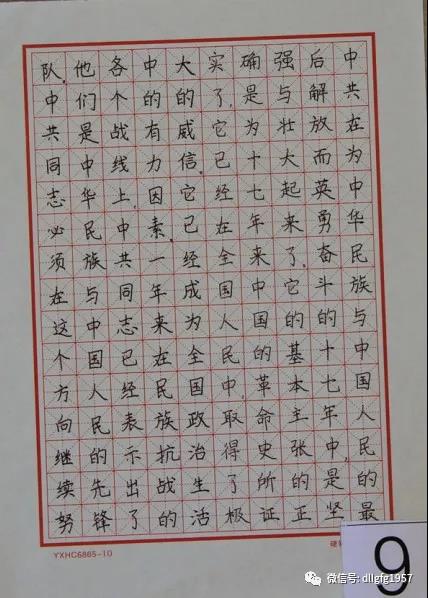 中共在为中华民族与中国人民的最
后解放而英勇奋斗的十七年中,是坚
强与壮大起来了。它的基本主张的正
确是为十七年来中国的革命史所证
实了,它已经在全国人民中,取得了极
大的威信,它已经成为全国政治生活
中的有力因素。一年来在民族抗战的
各个战线上,中共同志已经表示出了
他们是中华民族与中国人民的先锋
队。中共同志必须在这个方向继续努
YXHC6865-10
硬
9
微信号: dllgfg1957